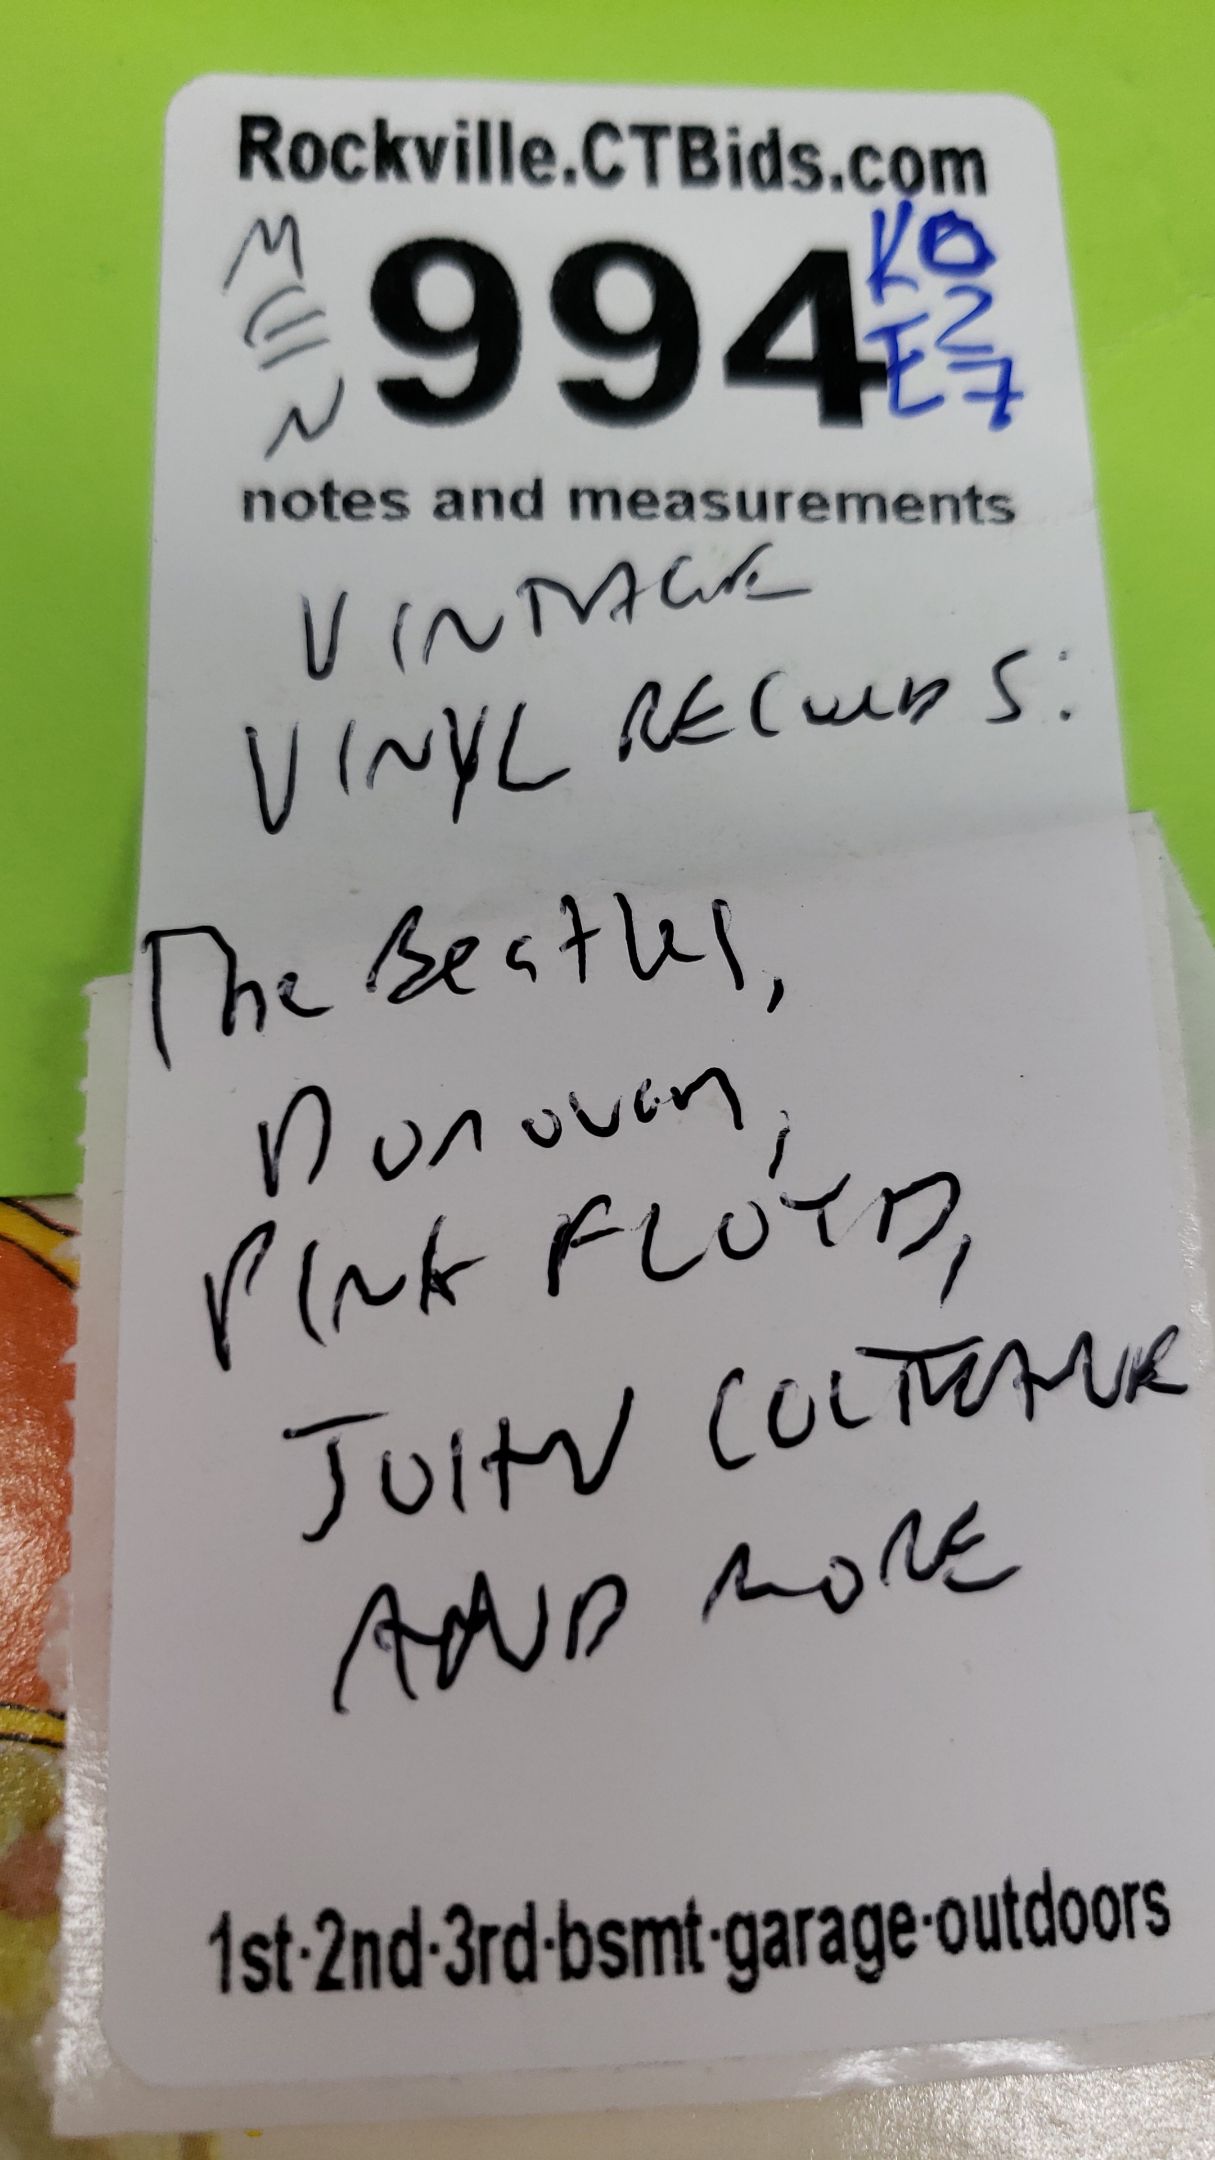 Rockville.CTBids.com
MEN
994
KO
2
E7
notes and measurements
VINTAGE
VINYL RECORDS:
The Beatles,
Donovan,
PINK FLOYD,
JOHN COLTRANE
AND MORE
1st·2nd·3rd·bsmt·garage·outdoors